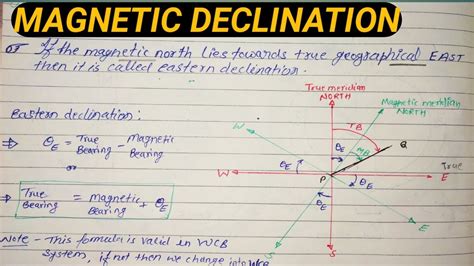 MAGNETIC DECLINATION
or If the magnetic north lies towards true geographical EAST
then it is called eastern declination.
Eastern declination:
⇒ θE = True Bearing - Magnetic Bearing
or
⇒ True Bearing = Magnetic Bearing + θE
Note - This formula is valid in WCB
system, if not then we change into WCB
True meridian
NORTH
Magnetic meridian
NORTH
TB
θE
MB
Q
W
W
θE
P
θE
True
E
θE
E
S
S